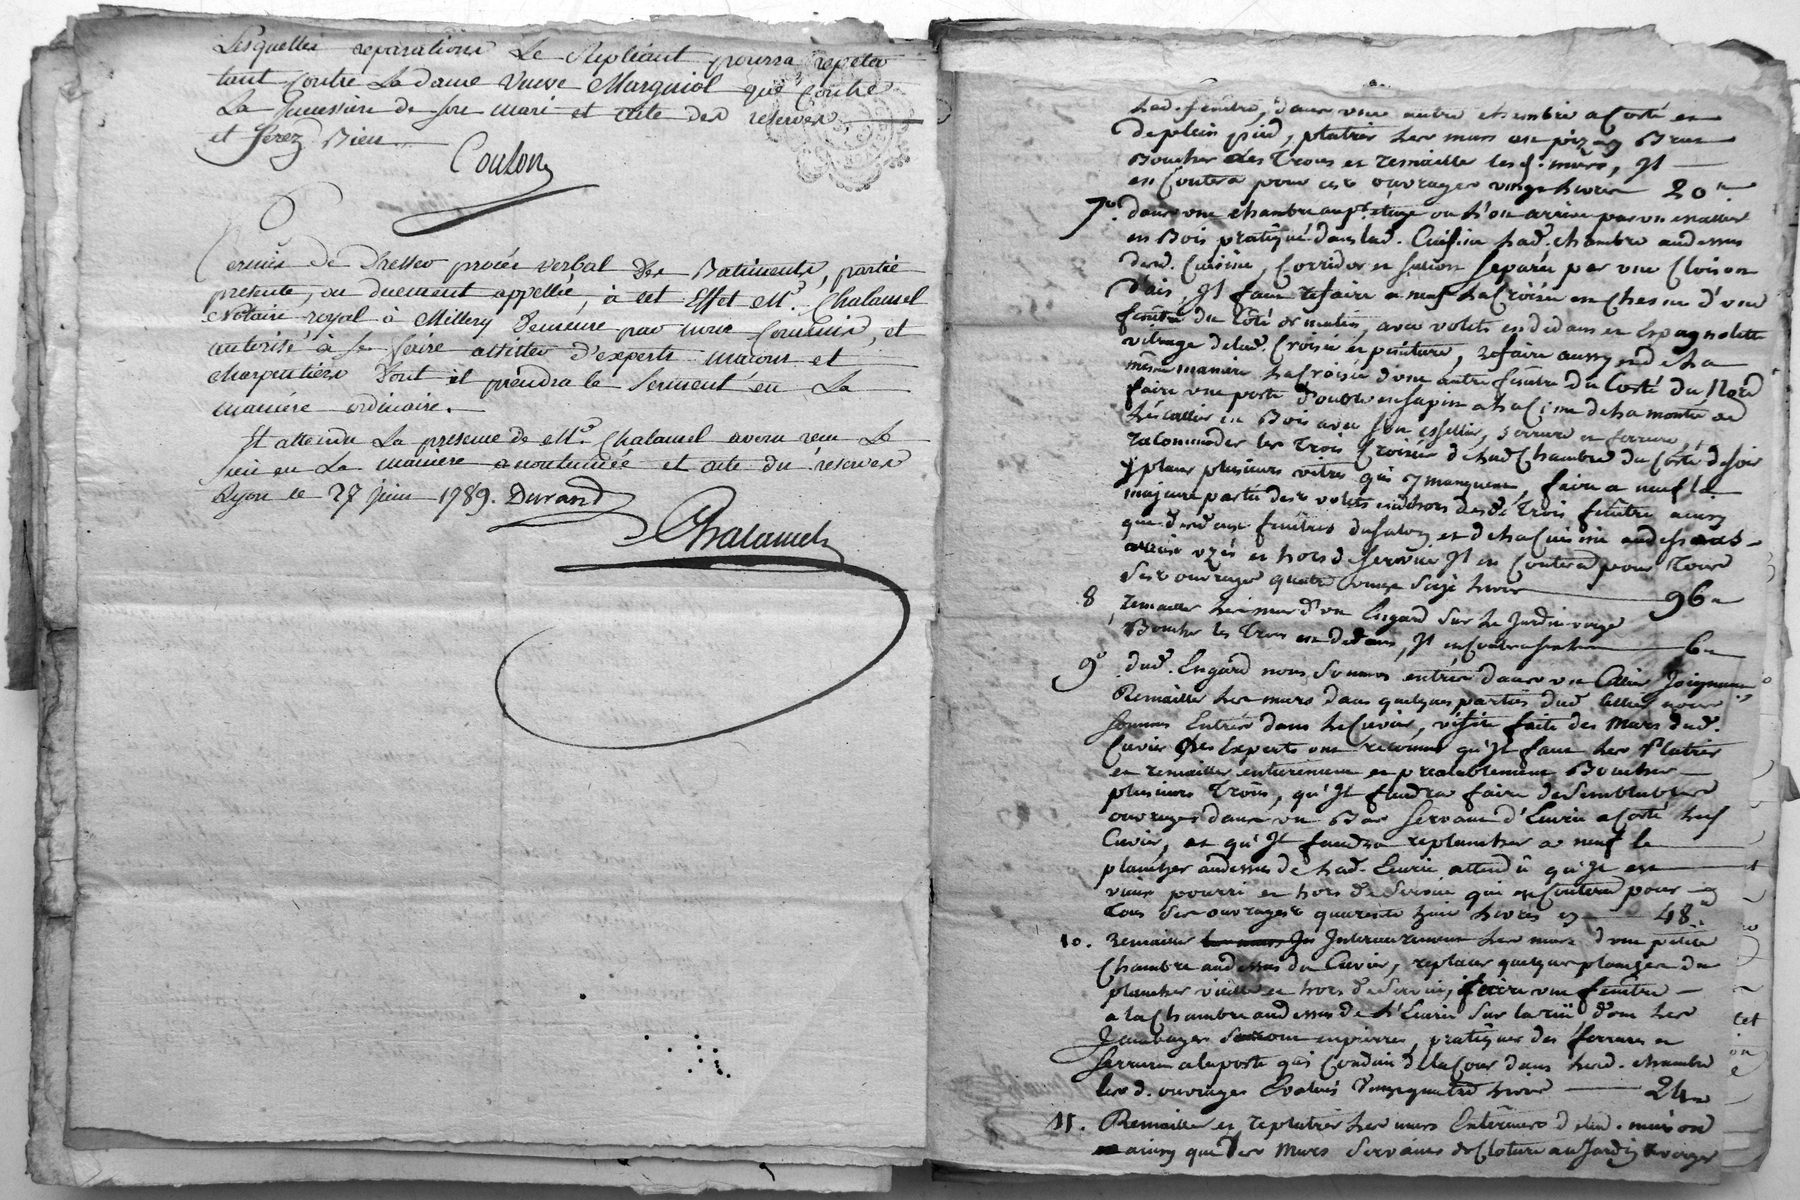 Lesquelles reparations Le Supliant pourra repeter
tant Contre La dame Veuve Marquiol que Contre
La Succession de son mari et acte des reserves
et Serez Bien
Coulon
Permis de Dresser procés verbal des Batiments, partie
presente, ou duement appellée, à cet Effet Me. Chalamel
Notaire royal à Millery Demeure par nous Commis, et
autorisé à se faire assister d'experts macons et
charpentiers dont il prendra le Serment en La
maniére ordinaire.
Et attendu La presence de Me. Chalamel avons recu Le
sien en La maniére accoutumée et acte du réserves
Lyon le 27 juin 1789. Durand
Chalamel
lad. fenêtre, dans une autre chambre a Costé et
deplein pied, platrir Les murs en pizey Brut
Boucher des Trous et remailler lesd. murs, Jl
en Coutera pour ces ouvrages vingt Livres 20 "
7°. dans une chambre au pr. etage ou L'on arrive par un escallier
en Bois pratiqué dans lad. Cuisine Lad. chambre audessus
delad. Cuisine, Corridor et Salon Separée par une Cloison
d'ais, Jl faut refaire a neuf La Croisée en Chesne d'une
fenêtre du Côté de matin, avec volets en dedans et Espagnolette
vitrage delad. Croisée et peinture, refaire aussy de La
même maniere La Croisée d'une autre fenêtre du Costé du Nord
faire une porte double en sapin a La Cime de La montée de
L'éscallier en Bois avec son , Serrure et ferrure,
racommoder les Trois Croisées de Lad Chambre du Costé de Soir
y placer plusieurs vitres qui y manquent, faire a neuf La
majeure partie des volets en dehors desd. Trois fenêtres ainsy
que des deux fenêtres du Salon et de La Cuisine audessous
uzés et hors de Service Jl en Coutera pour Tous
ses ouvrages quatre vingt Seize Livres 96 "
8 remailler Les murs d'un Engard Sur Le Jardin verger
Boucher les Trous en dedans, Jl en Coutera six Livres 6 "
9° dud. Engard nous Sommes entrés dans un Cellier Joignant
Remailler Les murs dans quelques parties dud Cellier nous
Sommes Entrés dans Le Cuvier, visite faite des Murs dud.
Cuvier Les Experts ont reconnus qu'Jl faut Les Platrir
et remailler entierement et prealablement Boucher
plusieurs Trous, qu'Jl faudra faire de Semblables
ouvrages dans un Bas Servant d'Ecurie a Costé Led
Cuvier, et qu'Jl faudra replancher a neuf le
plancher audessus de Lad. Ecurie attendû qu'Jl est
vieux pourri et hors de Service qui en Coutera pour
Tous Ses ouvrages quarente huit Livres cy 48 "
10. Remailler Interieurement Les murs d'une petite
Chambre audessus du Cuvier, replacer quelques planches du
plancher vieilles et hors de Service, faire une fenêtre
a la Chambre audessus de L'Ecurie Sur la rüe dont Les
Jambages Seront en pierres, pratiquer des ferrures et
Serrure a la porte qui Conduit de la Cour dans Lad. chambre
Lesd. ouvrages Evalués Vingt quatre Livres 24 "
11. Remailler et replatrir Les murs Exterieurs delad. maison
ainsy que Les Murs Servants de Cloture au Jardin verger